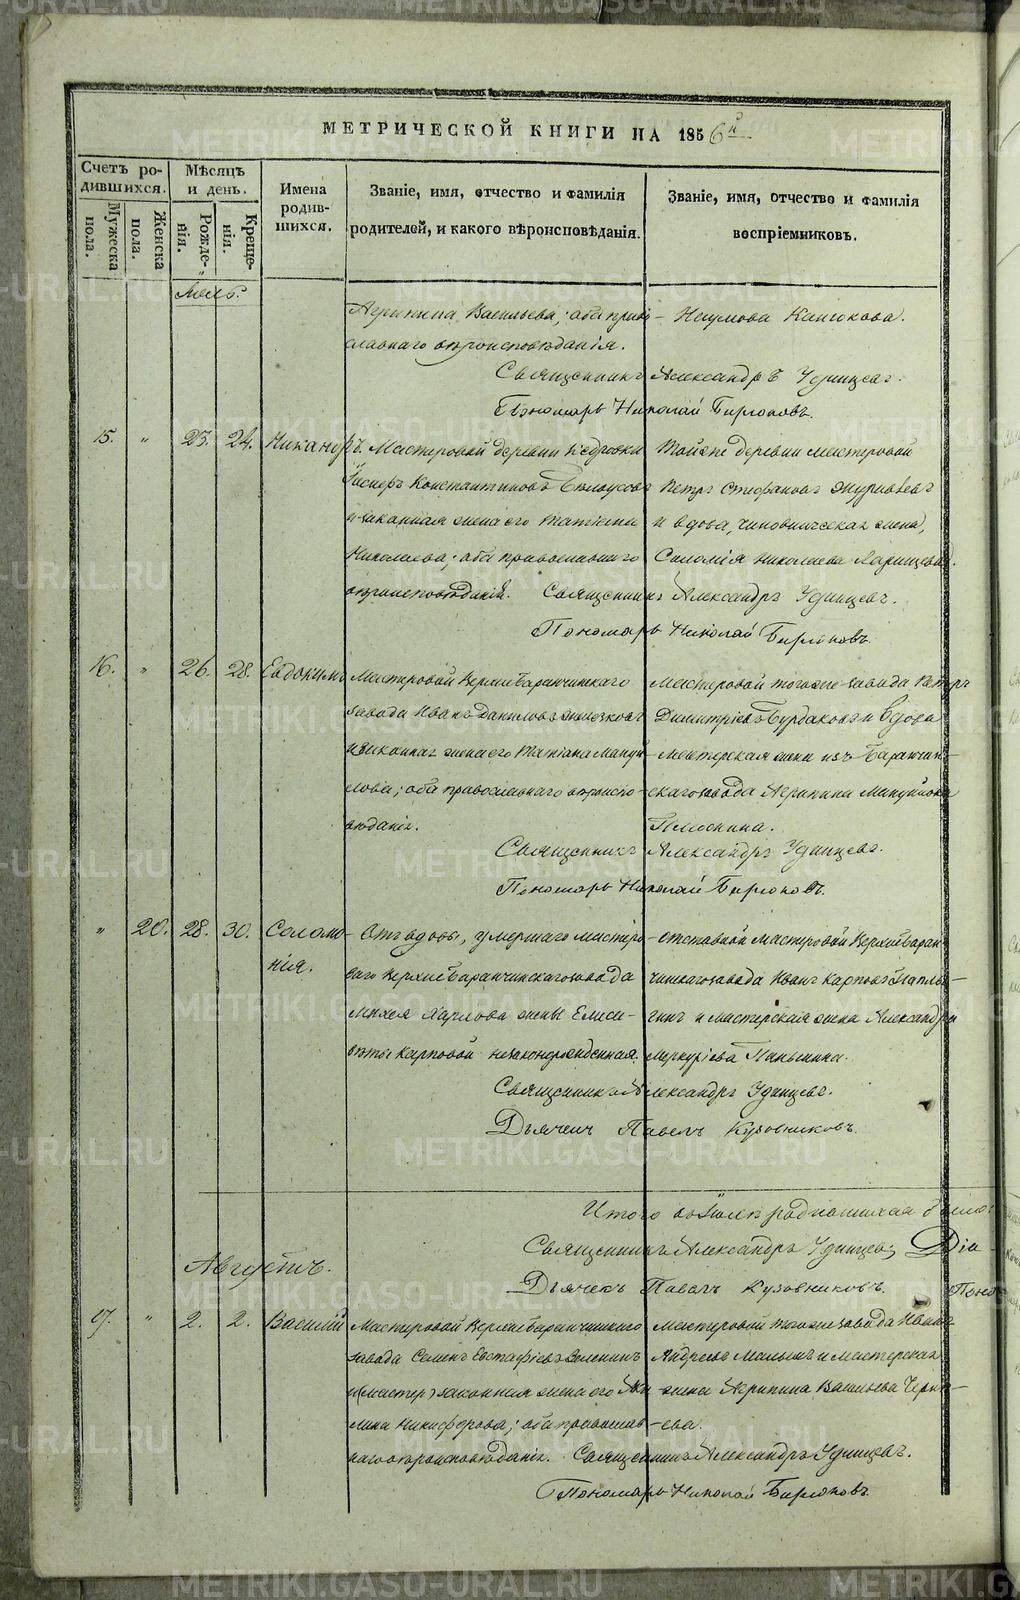 МЕТРИЧЕСКОЙ КНИГИ НА 1856й
Счетъ родившихся.
Мужеска пола.
Женска пола.
Мѣсяцъ и день.
Рожденія.
Крещенія.
Имена родившихся.
Званіе, имя, отчество и фамилія родителей, и какого вѣроисповѣданія.
Званіе, имя, отчество и фамилія воспріемниковъ.
Іюль.
Агрипина Васильева; оба право-
славнаго вѣроисповѣданія.
Наумова
Священникъ Александръ Удинцевъ.
Пономарь Николай Бирюковъ.
15. " 23. 24. Никаноръ.
Мастеровой деревни Кедровки
Константиновъ Бѣлоусовъ
и законная жена его Татіана
Николаева; оба православнаго
вѣроисповѣданія.
Тойже деревни мастеровой
Петръ Стефановъ Журавлевъ
и вдова, чиновническая жена,
Саломія Николаева
Священникъ Александръ Удинцевъ.
Пономарь Николай Бирюковъ.
16. " 26. 28. Евдокимъ
Мастеровой Верхнебаранчинскаго
завода Иванъ Даниловъ
и законная жена его Татіана Мануй-
лова; оба православнаго вѣроиспо-
вѣданія.
Мастеровой тогоже завода Петръ
Димитріевъ Бурдаковъ и вдова
мастерская жена изъ Баранчин-
скаго завода Агрипина Мануйлова
Плюснина.
Священникъ Александръ Удинцевъ.
Пономарь Николай Бирюковъ.
" 20. 28. 30. Соломо-
нія.
Отъ вдовы, умершаго мастеро-
ваго Верхнебаранчинскаго завода
жены Елиса-
веты Карповой незаконорожденная.
отставной мастеровой Верхнебаран-
чинскаго завода Иванъ Карповъ
и мастерская жена Александра
Меркуріева Паньшина.
Священникъ Александръ Удинцевъ.
Дьячекъ Павелъ Кузовниковъ.
Итого въ Іюлѣ родившихся было:
Священникъ Александръ Удинцевъ; Діа-
Дьячекъ Павелъ Кузовниковъ. Поно
Августъ.
17. " 2. 2. Василій
Мастеровой Верхнебаранчинскаго
завода Семенъ Евстафіевъ Зеленинъ
и (мастер) законная жена его Аки-
лина Никифорова; оба православ-
наго вѣроисповѣданія.
Мастеровой тогоже завода Иванъ
Андреевъ Малыхъ и мастерская
жена Агрипина Васильева
Священникъ Александръ Удинцевъ.
Пономарь Николай Бирюковъ.
METRIKI.GASO-URAL.RU